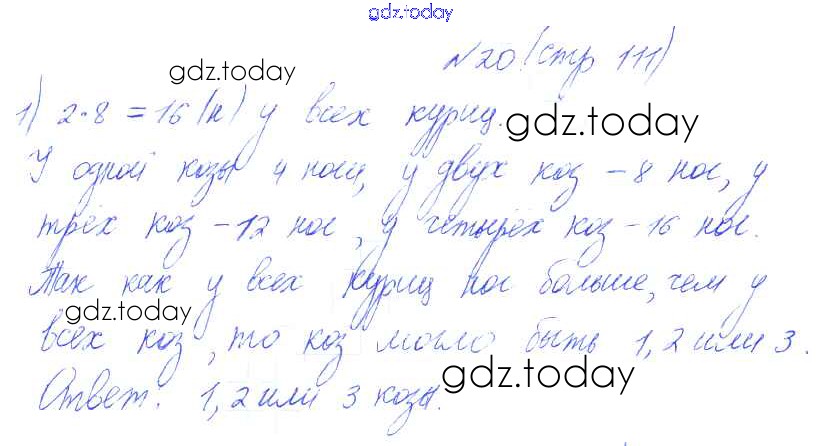 gdz.today
№20 (стр 111)
gdz.today
1) 2·8=16 (н) у всех куриц.
gdz.today
У одной козы 4 ноги, у двух коз - 8 ног, у
трёх коз - 12 ног, у четырёх коз - 16 ног.
Так как у всех куриц ног больше, чем у
gdz.today
всех коз, то коз могло быть 1, 2 или 3.
gdz.today
Ответ. 1, 2 или 3 козы.